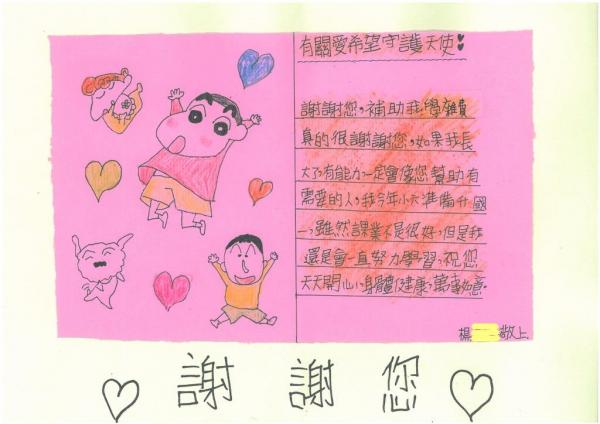 有關愛希望守護天使
謝謝您,補助我學雜費
真的很謝謝您,如果我長
大了有能力一定會像您幫助有
需要的人,我今年小六準備升國
一,雖然課業不是很好,但是我
還是會一直努力學習,祝您
天天開心,身體健康,萬事如意
楊 敬上
謝謝您